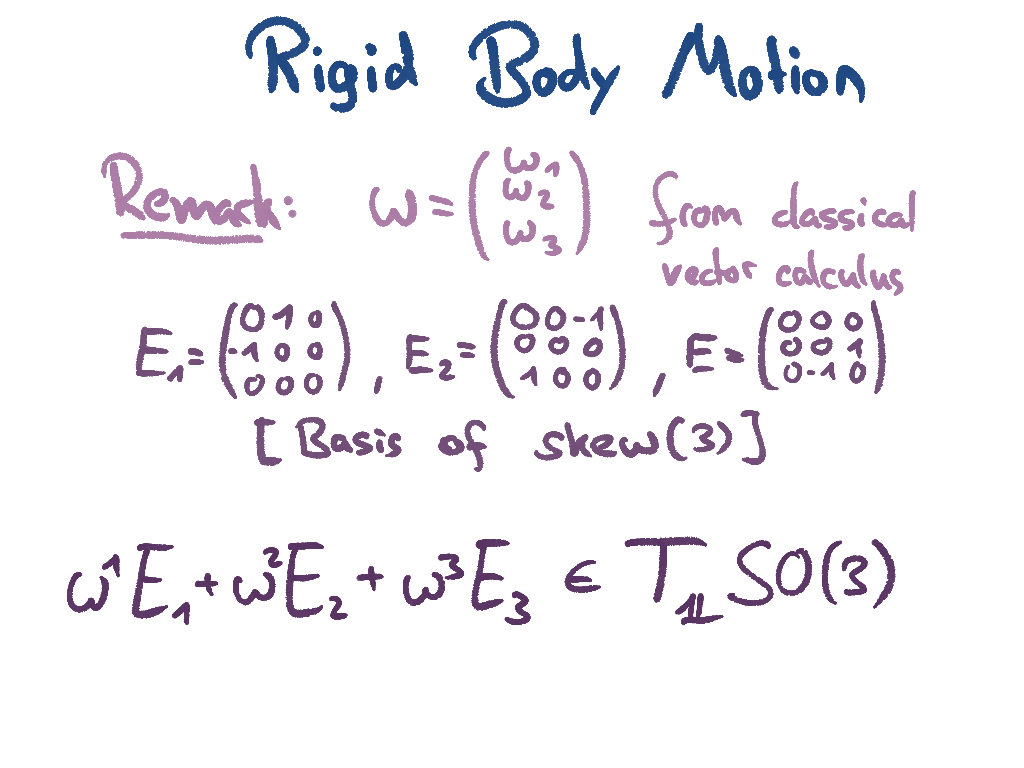 Rigid Body Motion
Remark: ω = (ω₁ ω₂ ω₃) from classical
vector calculus
E₁ = (0 1 0 / -1 0 0 / 0 0 0), E₂ = (0 0 -1 / 0 0 0 / 1 0 0), E = (0 0 0 / 0 0 1 / 0 -1 0)
[Basis of skew(3)]
ω¹E₁ + ω²E₂ + ω³E₃ ∈ T_𝟙 SO(3)